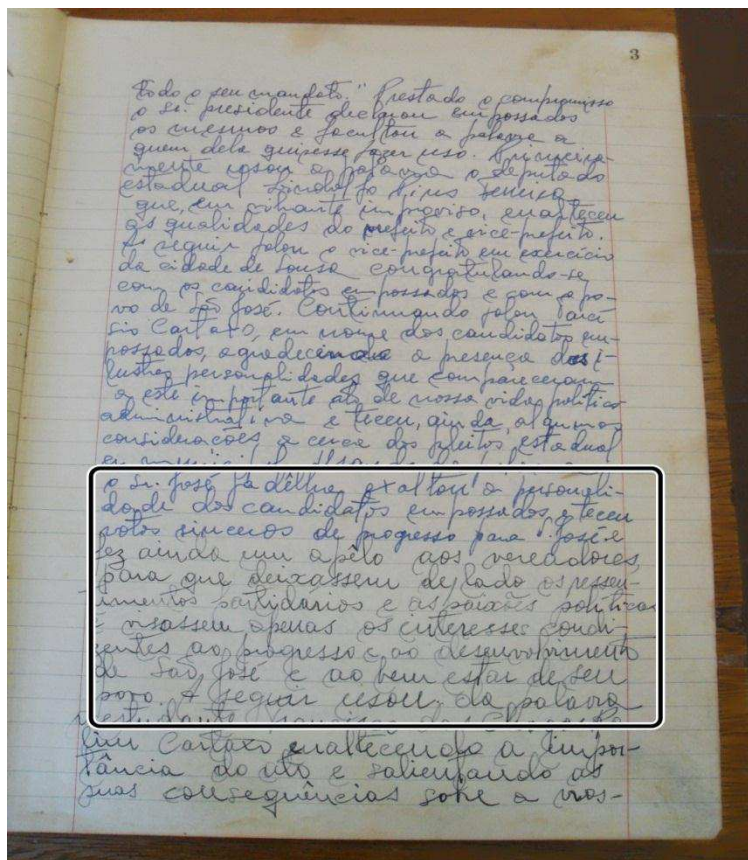 3
todo o seu mandato." Prestado o compromisso
o Sr. presidente declarou empossados
os mesmos e facultou a palavra a
quem dela quisesse fazer uso. Primeira-
mente usou a palavra o deputado
estadual Pires Ferreira
que, em vibrante improviso, enalteceu
as qualidades do prefeito e vice-prefeito.
A seguir falou o vice-prefeito em exercício
da cidade de Sousa congratulando-se
com os candidatos empossados e com o po-
vo de São José. Continuando falou Tarcí
sio Cartaxo, em nome dos candidatos em-
possados, agradecendo a presença das i-
lustres personalidades que compareceram
a este importante ato de nossa vida político
administrativa e teceu, ainda, algumas
considerações, a cerca dos pleitos estadual
e municipal.
o Sr. José Gadêlha exaltou a personali-
dade dos candidatos empossados e teceu
votos sinceros de progresso para S. José e
fez ainda um apêlo aos vereadores,
para que deixassem de lado os ressen-
timentos partidários e as paixões políticas
e usassem apenas os interesses condi-
zentes ao progresso e ao desenvolvimento
de São José e ao bem estar de seu
povo. A seguir usou da palavra
estudante Francisco das Chagas
Lins Cartaxo enaltecendo a impor-
tância do ato e salientando as
suas consequências sobre a nos-